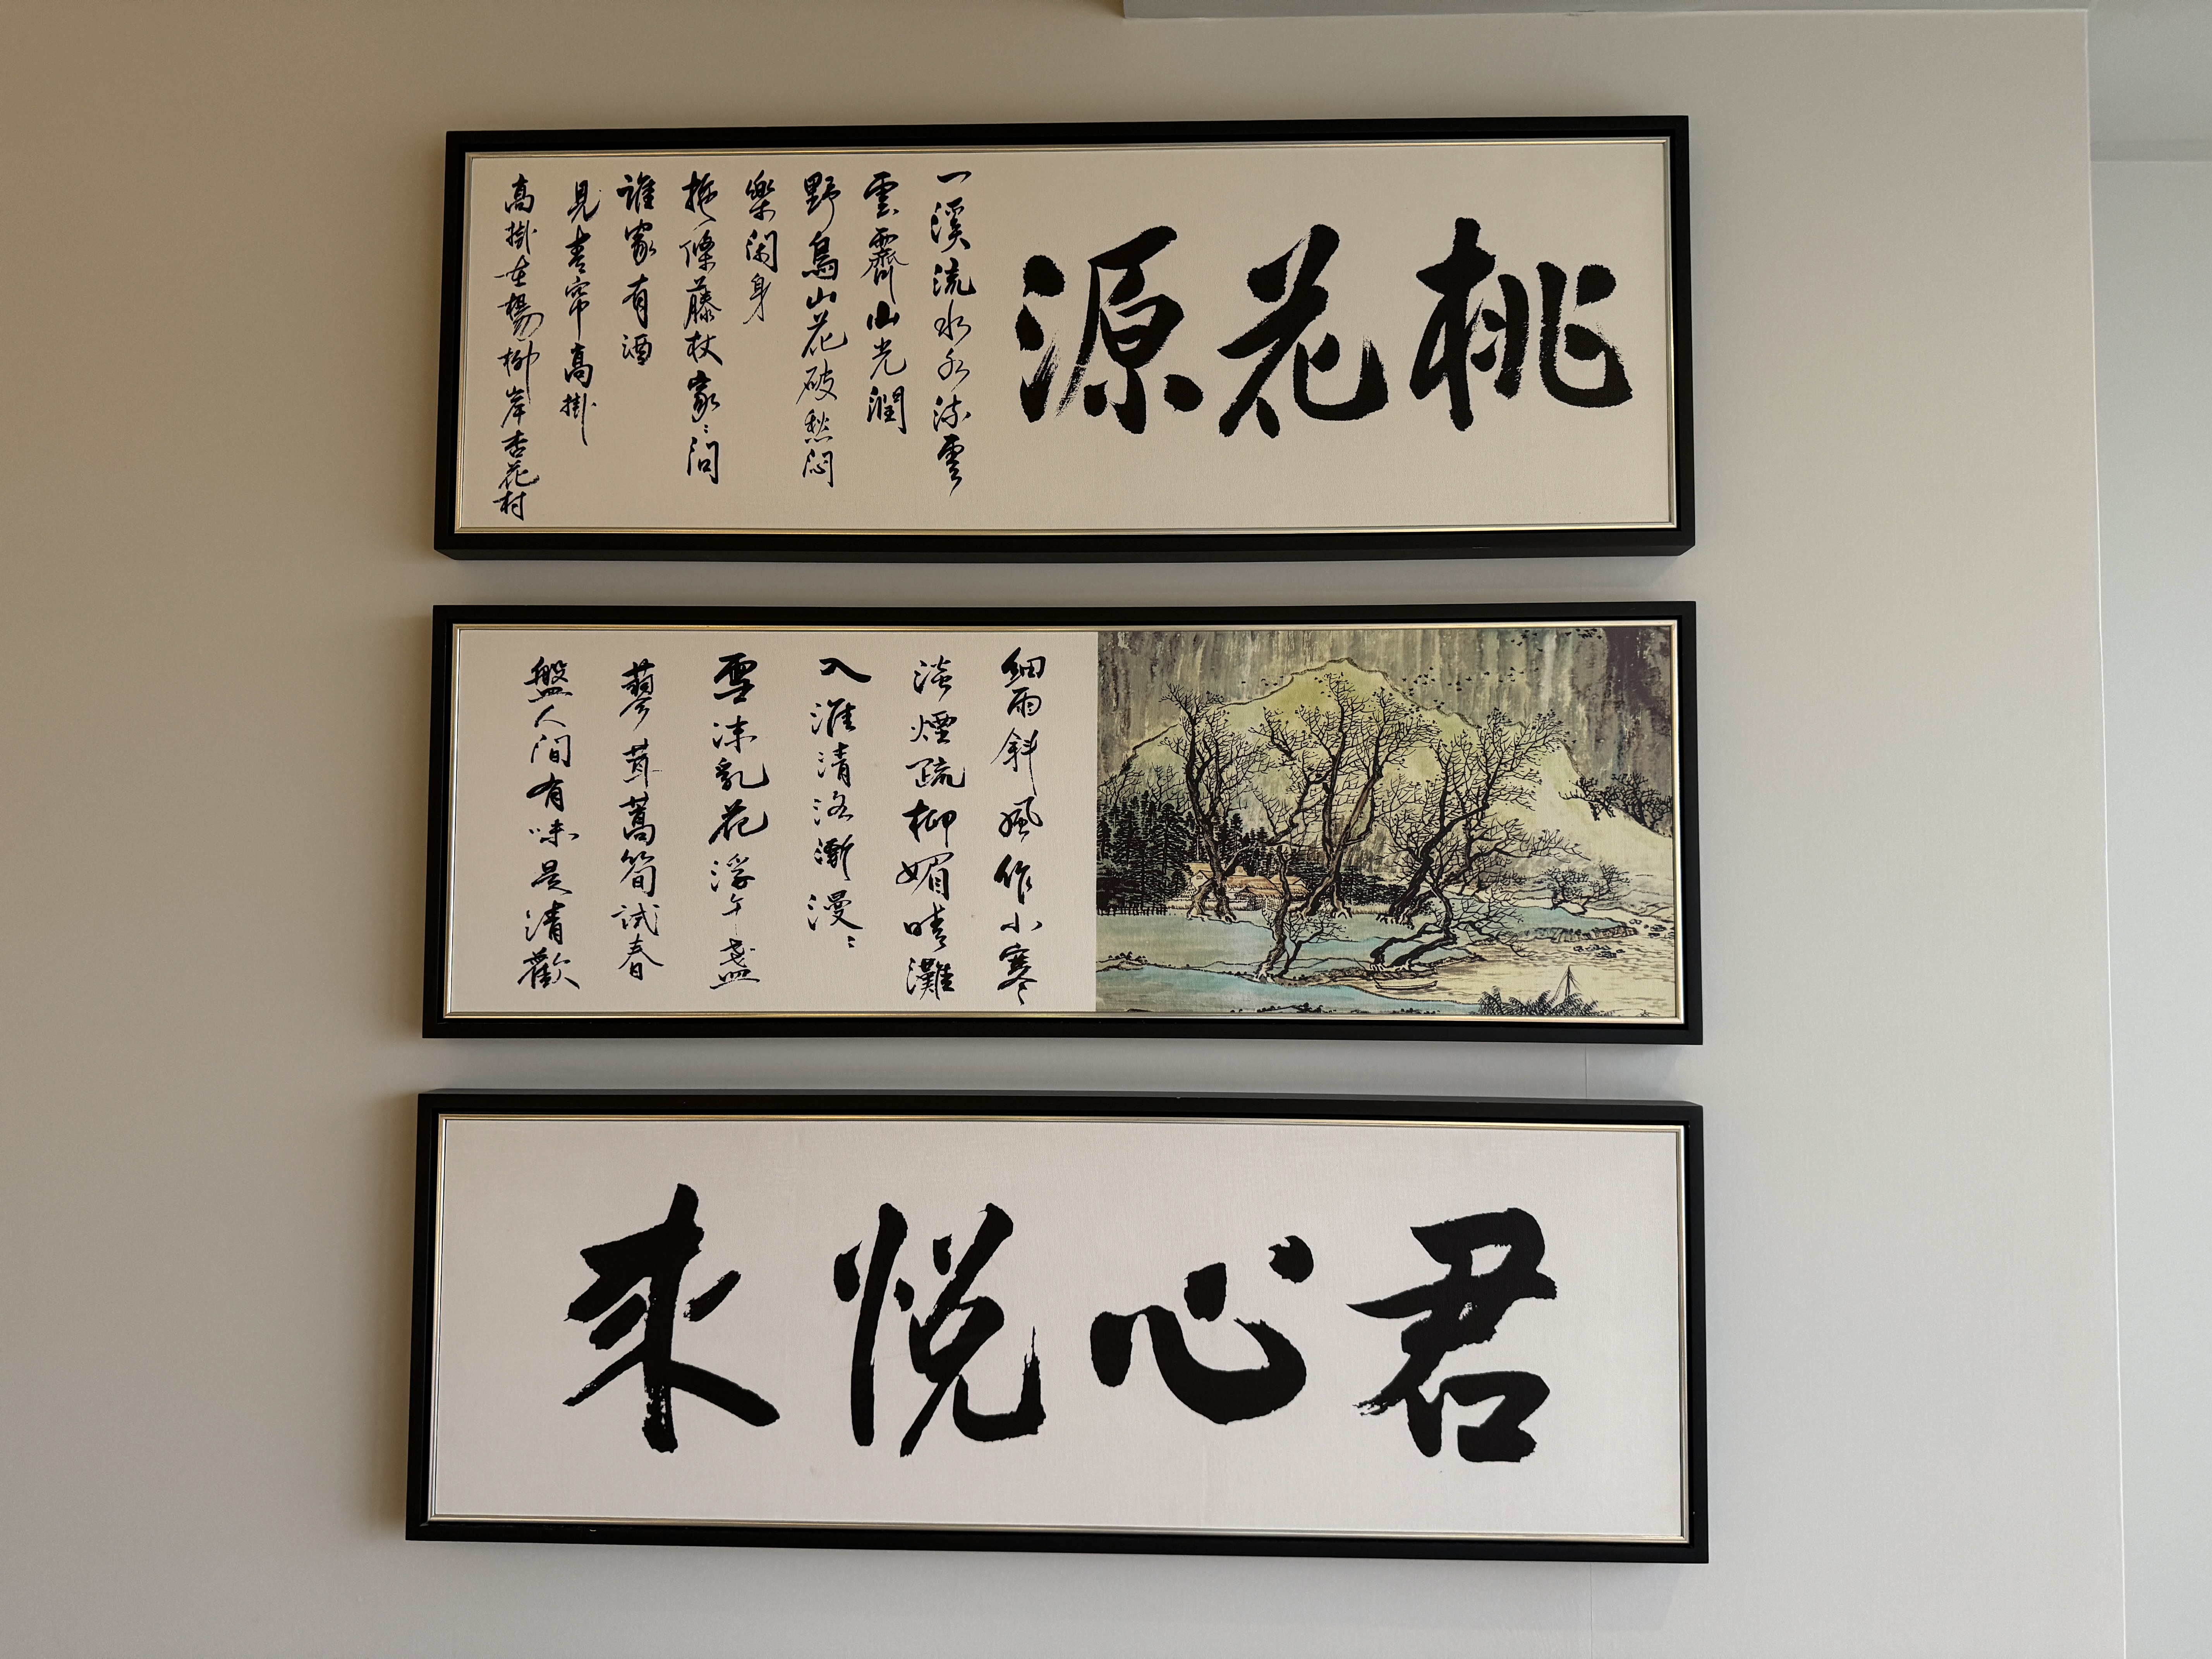 桃花源
一溪流水水流雲
雲霽山光潤
野鳥山花破愁悶
樂閑身
拖條藤杖家〻問
誰家有酒
見青帘高掛
高掛在楊柳岸杏花村
細雨斜風作小寒
淡煙疏柳媚晴灘
入淮清洛漸漫〻
雪沫乳花浮午盞
蓼茸蒿筍試春
盤人間有味是清歡
君心悅來